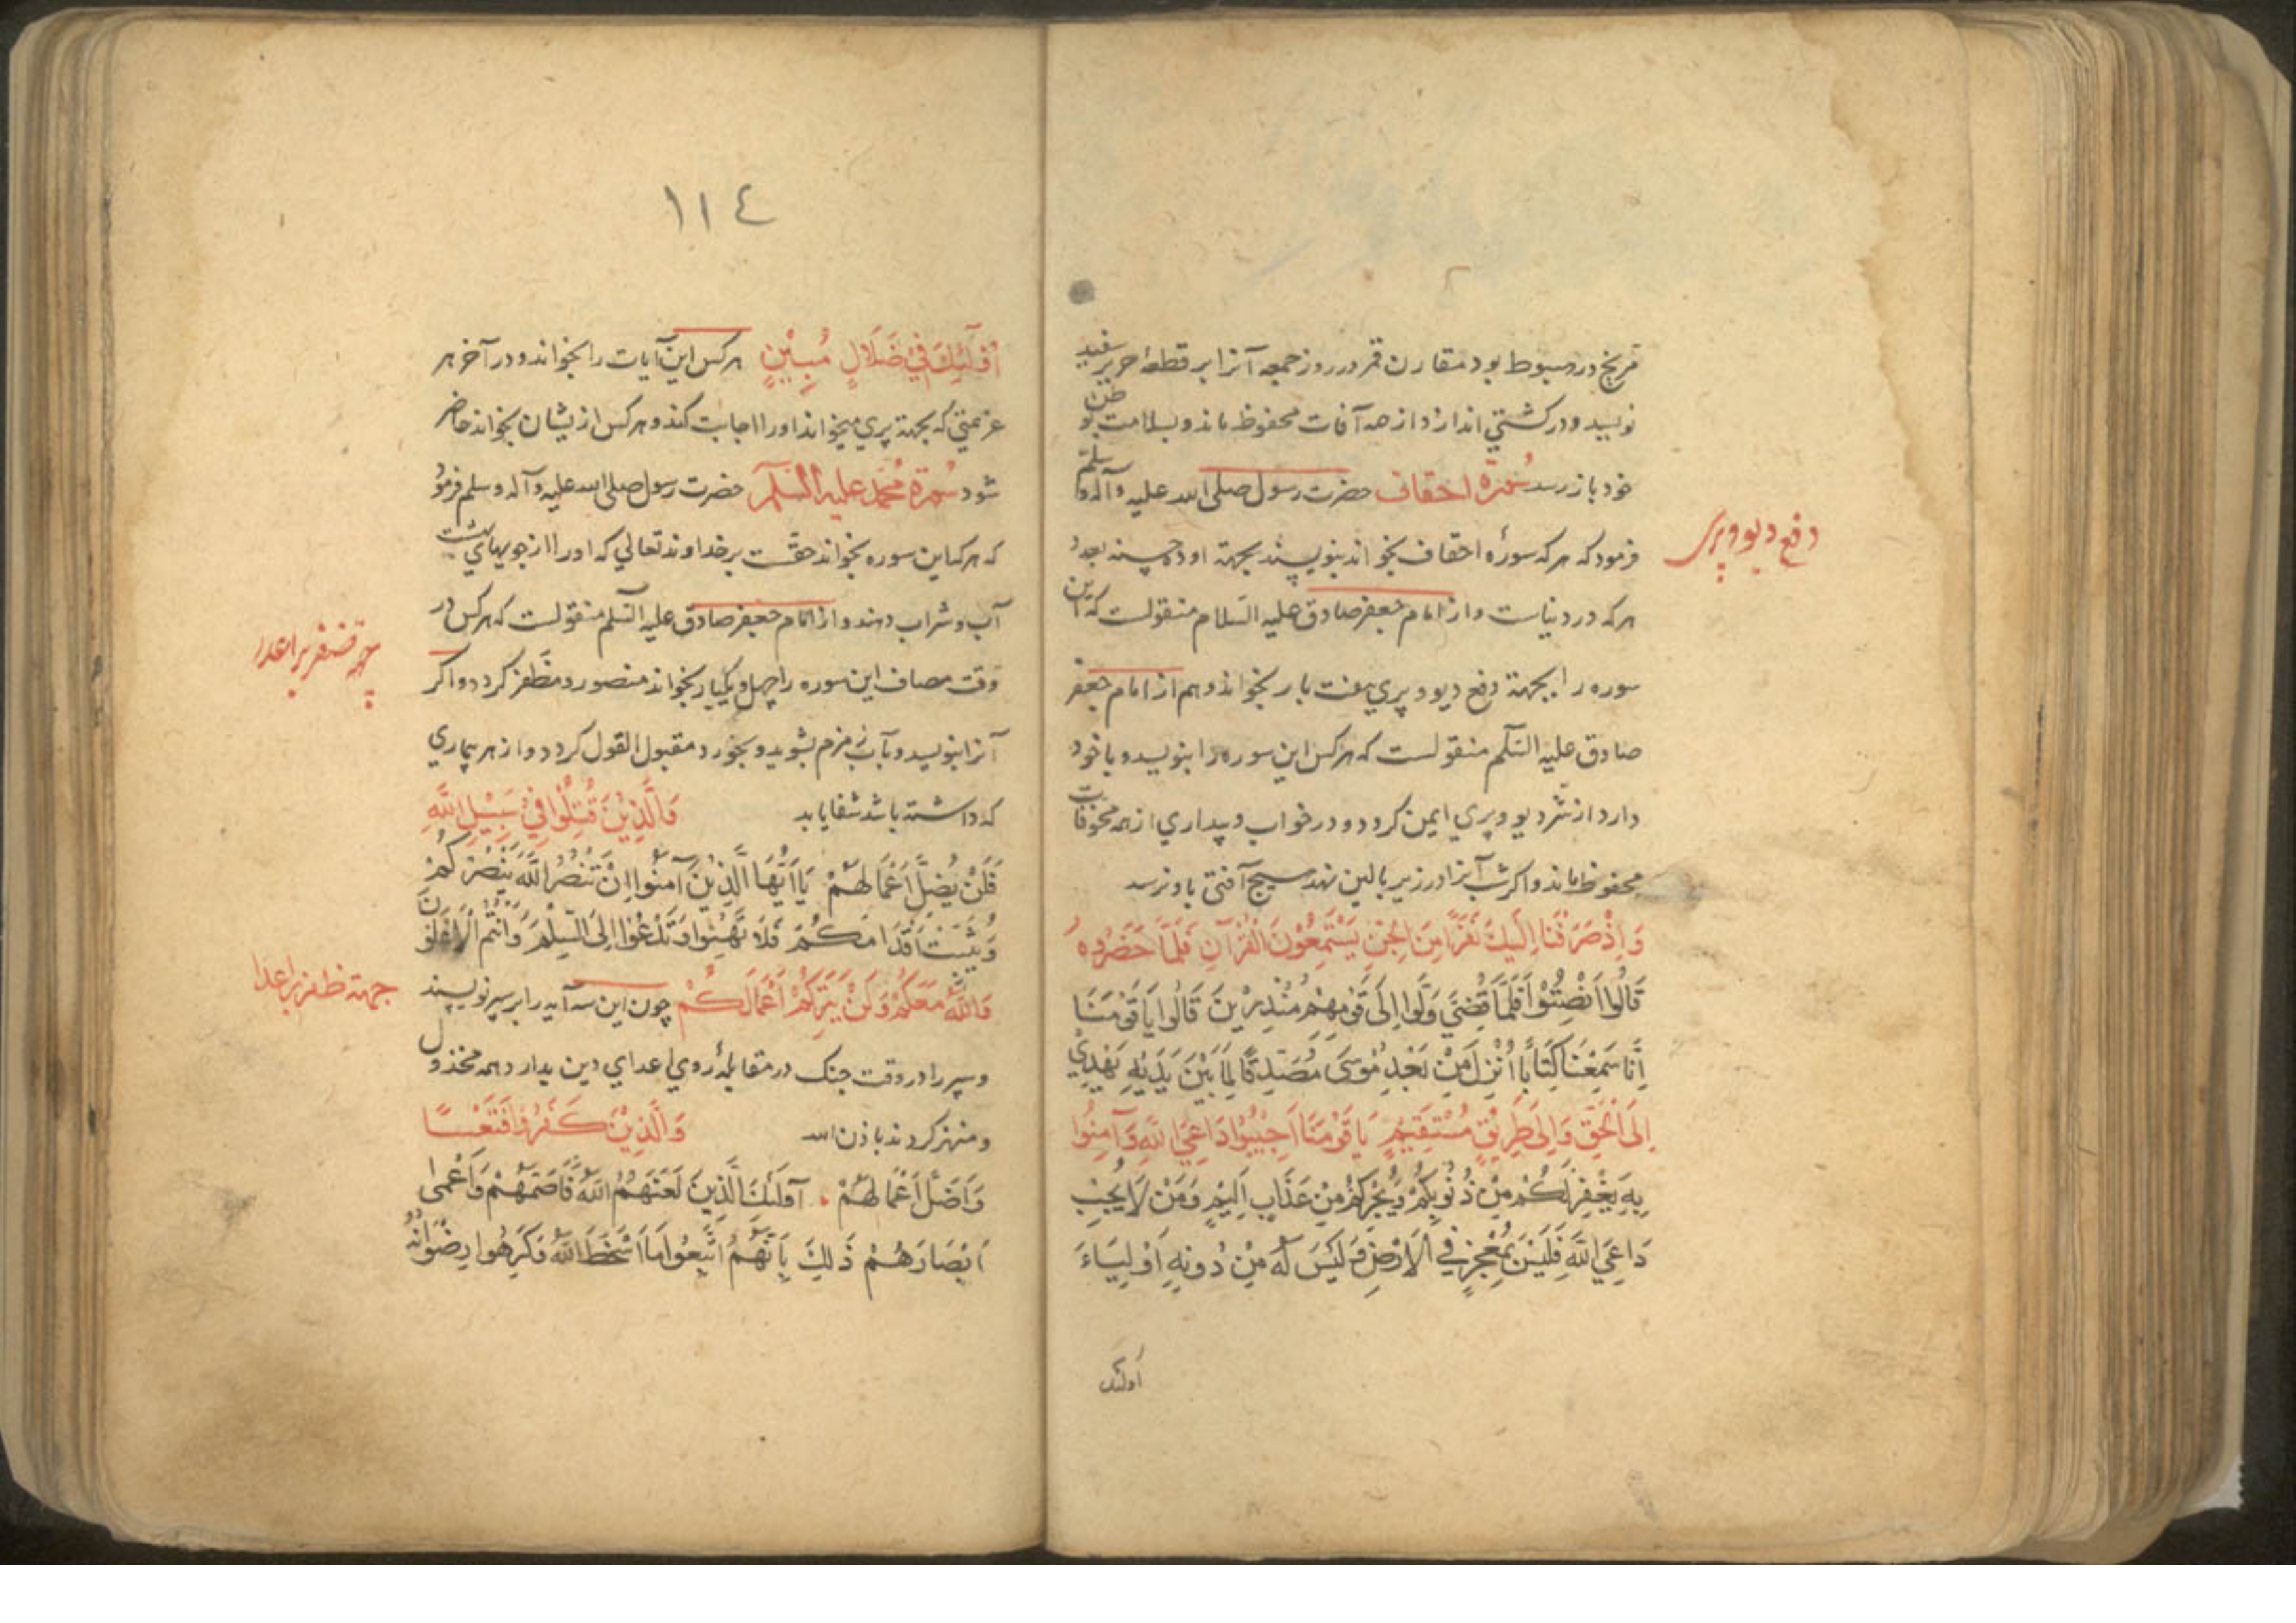 مریخ در هبوط بود مقارن قمر در روز جمعه آنرا بر قطعه حریر سفید
نویسد و در کشتی اندازد از همه آفات محفوظ ماند و بسلامت بوطن
خود باز رسد سُورَة احقاف حضرت رسول صلی الله علیه وآله وسلم
فرمود که هر که سورۀ احقاف بخواند بنویسند بجهة او ده حسنه بعدد
دفع دیو و پری
هر که در دنیاست و از امام جعفر صادق علیه السّلام منقولست که این
سوره را بجهة دفع دیو و پری هفت بار بخواند و هم از امام جعفر
صادق علیه السّلم منقولست که هر کس این سوره را بنویسد و با خود
دارد از شر دیو و پری ایمن کردد و در خواب و بیداری از همه مخوفات
محفوظ ماند و اکر شب آنرا در زیر بالین نهد هیچ آفتی باو نرسد
وَاِذْ صَرَفْنَا اِلَيْكَ نَفَرًا مِنَ الْجِنِّ يَسْتَمِعُوْنَ الْقُرْآنِ فَلَمَّا حَضَرُوهُ
قَالُوا اَنْصِتُوْا فَلَمَّا قُضِيَ وَلَّوا اِلَى قَوْمِهِمْ مُنْذِرِيْنَ قَالُوا يَا قَوْمَنَا
اِنَّا سَمِعْنَا كِتَابًا اُنْزِلَ مِنْ بَعْدِ مُوْسَى مُصَدِّقًا لِمَا بَيْنَ يَدَيْهِ يَهْدِيْ
اِلَى الْحَقِّ وَاِلَى طَرِيْقٍ مُسْتَقِيْمٍ يَا قَوْمَنَا اَجِيْبُوْا دَاعِيَ اللهِ وَآمِنُوْا
بِهِ يَغْفِرْ لَكُمْ مِنْ ذُنُوْبِكُمْ وَيُجِرْكُمْ مِنْ عَذَابٍ اَلِيْمٍ وَمَنْ لَا يُجِبْ
دَاعِيَ اللهِ فَلَيْسَ بِمُعْجِزٍ فِي الْاَرْضِ وَلَيْسَ لَهُ مِنْ دُونِهِ اَوْلِيَاءَ
اُولئک
١١٤
اُوْلٓئِكَ فِيْ ضَلَالٍ مُبِيْنٍ هر کس این آیات را بخواند و در آخر هر
عزیمتی که بجهة پری میخواند او را اجابت کند و هر کس از ایشان بخواند حاضر
شود سُورَة مُحَمَّد علیه السّلم حضرت رسول صلی الله علیه وآله وسلم فرمود
که هر که این سوره بخواند حقّست بر خداوند تعالی که او را از جویهای بهشت
آب و شراب دهد و از امام جعفر صادق علیه السّلم منقولست که هر کس در
وقت مصاف این سوره را چهل و یکبار بخواند منصور و مظفر کردد و اکر
آنرا بنویسد و بآب زمزم بشوید و بخورد مقبول القول کردد و از هر بیماری
که داشته باشد شفا یابد وَالَّذِيْنَ قُتِلُوْا فِيْ سَبِيْلِ اللهِ
فَلَنْ يُضِلَّ اَعْمَالَهُمْ يَا اَيُّهَا الَّذِيْنَ آمَنُوْا اِنْ تَنْصُرُ اللهَ يَنْصُرْكُمْ
وَيُثَبِّتْ اَقْدَامَكُمْ فَلَا تَهِنُوا وَتَدْعُوْا اِلَى السِّلْمِ وَاَنْتُمُ الْاَعْلَوْنَ
وَاللهُ مَعَكُمْ وَلَنْ يَتِرَكُمْ اَعْمَالَكُمْ چون این سه آیه را بر سپر نویسند
جهة ظفر بر اعدا
و سپر را در وقت جنک در مقابلۀ روی اعدای دین بدارد همه مخذول
و منهزم کردند باذن الله وَالَّذِيْنَ كَفَرُوْا فَتَعْسًا
وَاَضَلَّ اَعْمَالَهُمْ اُولٰئِكَ الَّذِيْنَ لَعَنَهُمُ اللهُ فَاَصَمَّهُمْ وَاَعْمٰى
اَبْصَارَهُمْ ذٰلِكَ بِاَنَّهُمُ اتَّبَعُوْا مَا اَسْخَطَ اللهَ وَكَرِهُوا رِضْوَانَهُ